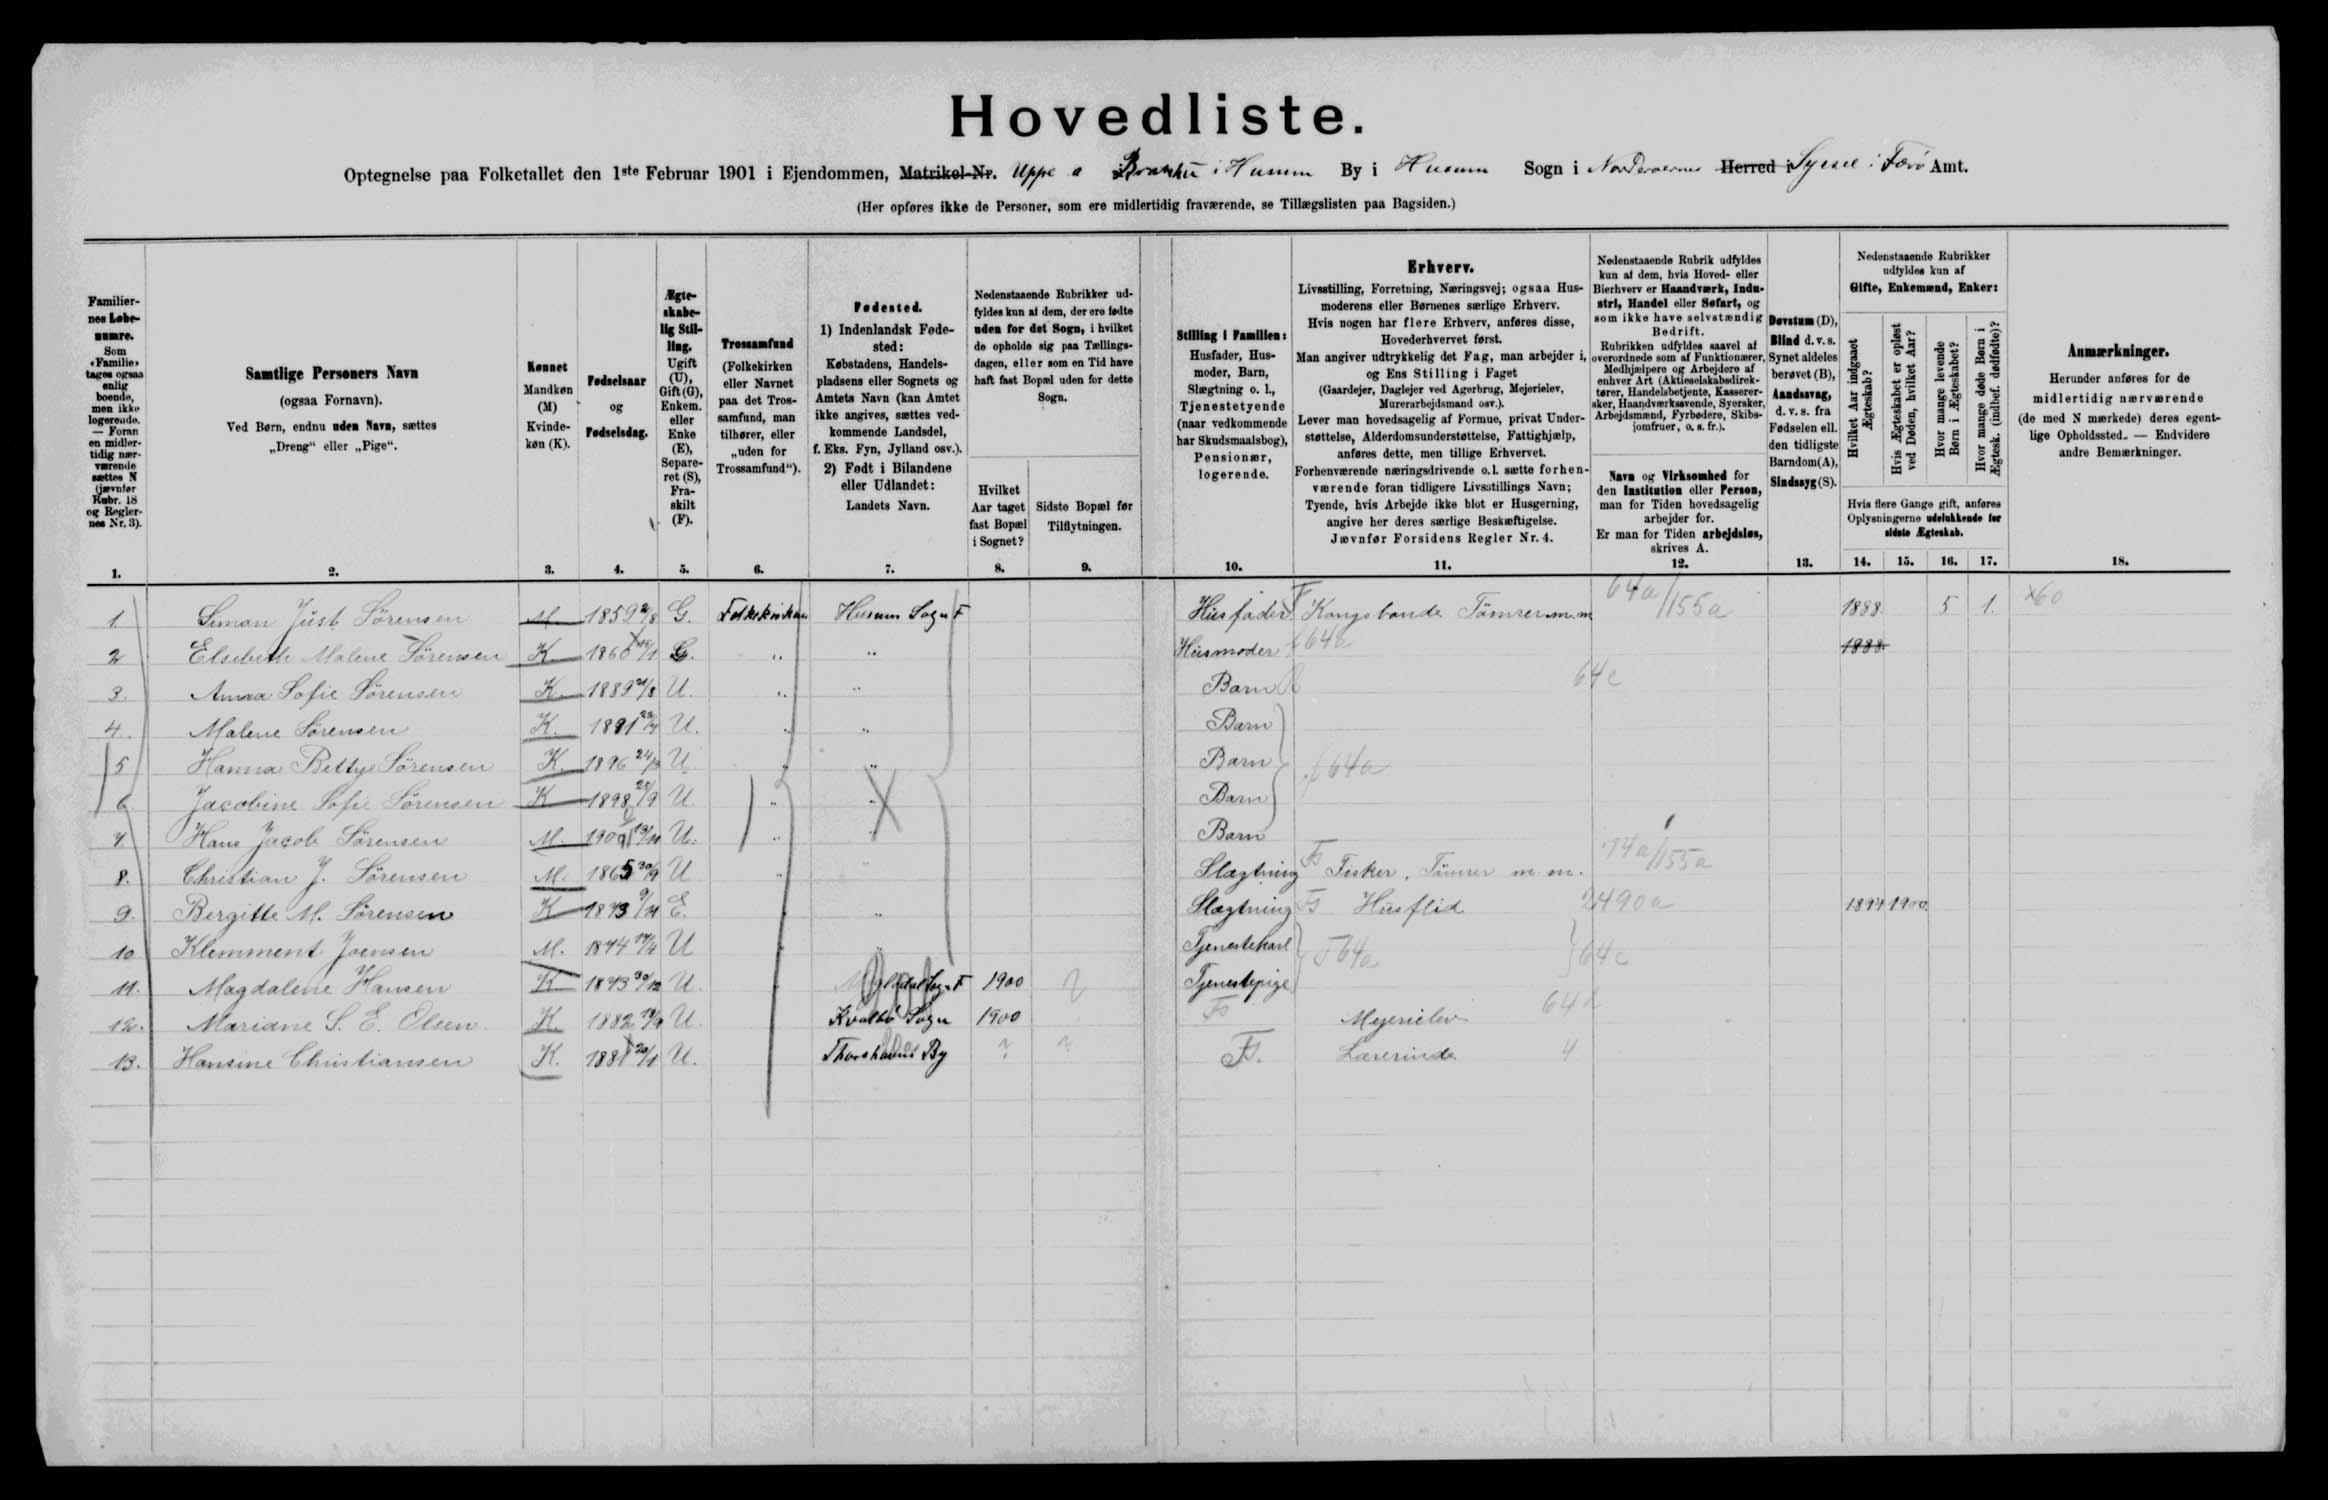 Hovedliste.
Optegnelse paa Folketallet den 1ste Februar 1901 i Ejendommen, Matrikel-Nr. Uppe a i Husum By i Husum Sogn i Norderoernes Herred i Syssel i Færø Amt.
(Her opføres ikke de Personer, som ere midlertidig fraværende, se Tillægslisten paa Bagsiden.)
Familier-
nes Løbe-
numre.
Som
«Familie»
tages ogsaa
enlig
boende,
men ikke
logerende.
— Foran
en midler-
tidig nær-
værende
sættes N
(jævnfør
Rubr. 18
og Regler-
nes Nr. 3).
1.
Samtlige Personers Navn
(ogsaa Fornavn).
Ved Børn, endnu uden Navn, sættes
„Dreng“ eller „Pige“.
2.
Kønnet
Mandkøn
(M)
Kvinde-
køn (K).
3.
Fødselsaar
og
Fødselsdag.
4.
Ægte-
skabe-
lig Stil-
ling.
Ugift
(U),
Gift (G),
Enkem.
eller
Enke
(E),
Separe-
ret (S),
Fra-
skilt
(F).
5.
Trossamfund
(Folkekirken
eller Navnet
paa det Tros-
samfund, man
tilhører, eller
„uden for
Trossamfund“).
6.
Fødested.
1) Indenlandsk Føde-
sted:
Købstadens, Handels-
pladsens eller Sognets og
Amtets Navn (kan Amtet
ikke angives, sættes ved-
kommende Landsdel,
f. Eks. Fyn, Jylland osv.).
2) Født i Bilandene
eller Udlandet:
Landets Navn.
7.
Nedenstaaende Rubrikker ud-
fyldes kun af dem, der ere fødte
uden for det Sogn, i hvilket
de opholde sig paa Tællings-
dagen, eller som en Tid have
haft fast Bopæl uden for dette
Sogn.
Hvilket
Aar taget
fast Bopæl
i Sognet?
8.
Sidste Bopæl før
Tilflytningen.
9.
Stilling i Familien:
Husfader, Hus-
moder, Barn,
Slægtning o. l.,
Tjenestetyende
(naar vedkommende
har Skudsmaalsbog),
Pensionær,
logerende.
10.
Erhverv.
Livsstilling, Forretning, Næringsvej; ogsaa Hus-
moderens eller Børnenes særlige Erhverv.
Hvis nogen har flere Erhverv, anføres disse,
Hovederhvervet først.
Man angiver udtrykkelig det Fag, man arbejder i,
og Ens Stilling i Faget
(Gaardejer, Daglejer ved Agerbrug, Mejerielev,
Murerarbejdsmand osv.).
Lever man hovedsagelig af Formue, privat Under-
støttelse, Alderdomsunderstøttelse, Fattighjælp,
anføres dette, men tillige Erhvervet.
Forhenværende næringsdrivende o. l. sætte forhen-
værende foran tidligere Livsstillings Navn;
Tyende, hvis Arbejde ikke blot er Husgerning,
angive her deres særlige Beskæftigelse.
Jævnfør Forsidens Regler Nr. 4.
11.
Nedenstaaende Rubrik udfyldes
kun af dem, hvis Hoved- eller
Bierhverv er Haandværk, Indu-
stri, Handel eller Søfart, og
som ikke have selvstændig
Bedrift.
Rubrikken udfyldes saavel af
overordnede som af Funktionærer,
Medhjælpere og Arbejdere af
enhver Art (Aktieselskabsdirek-
tører, Handelsbetjente, Kasserer-
sker, Haandværkssvende, Syersker,
Arbejdsmænd, Fyrbødere, Skibs-
jomfruer, o. s. fr.).
Navn og Virksomhed for
den Institution eller Person,
man for Tiden hovedsagelig
arbejder for.
Er man for Tiden arbejdsløs,
skrives A.
12.
Døvstum (D),
Blind d. v. s.
Synet aldeles
berøvet (B),
Aandssvag,
d. v. s. fra
Fødselen ell.
den tidligste
Barndom (A),
Sindssyg (S).
13.
Nedenstaaende Rubrikker
udfyldes kun af
Gifte, Enkemænd, Enker:
Hvilket Aar indgaaet
Ægteskab?
Hvis Ægteskabet er opløst
ved Døden, hvilket Aar?
Hvor mange levende
Børn i Ægteskabet?
Hvor mange døde Børn i
Ægtesk. (indbef. dødfødte)?
Hvis flere Gange gift, anføres
Oplysningerne udelukkende for
sidste Ægteskab.
14. 15. 16. 17.
Anmærkninger.
Herunder anføres for de
midlertidig nærværende
(de med N mærkede) deres egent-
lige Opholdssted. — Endvidere
andre Bemærkninger.
18.
1 Simon Just Sörensen M. 1859 2/8 G. Folkekirken Husum Sogn F Husfader F Kongsbonde Tömrer m.m 64a/155a 1888. 5 1. x60
2 Elsebeth Malene Sörensen K 1860 G. " " Husmoder 64a 1888.
3. Anna Sofie Sörensen K 1889 U. " " Barn 64c
4. Malene Sörensen K. 1891 U. " " Barn
5 Hanna Bettye Sörensen K 1896 U " " Barn 64a
6 Jacobine Sofie Sörensen K 1898 U " " Barn
7 Hans Jacob Sörensen M. 1900 U. " " Barn
8. Christian J. Sörensen M. 1865 U " " Slægtning Fisker, Tömrer m.m. 74a/155a
9. Bergitte M. Sörensen K 1873 E. " " Slægtning Husflid 1900
10 Klemment Joensen M. 1874 U " " Tjenestekarl 64a 64c
11. Magdalene Hansen K 1873 30/12 U. Sogn F 1900 Tjenestepige
12. Mariane S. E. Olsen K. 1882 U. Kvalbö Sogn 1900 Mejerielev 64
13. Hansine Christiansen K. 1881 U. Thorshavns By ? ? Lærerinde 4